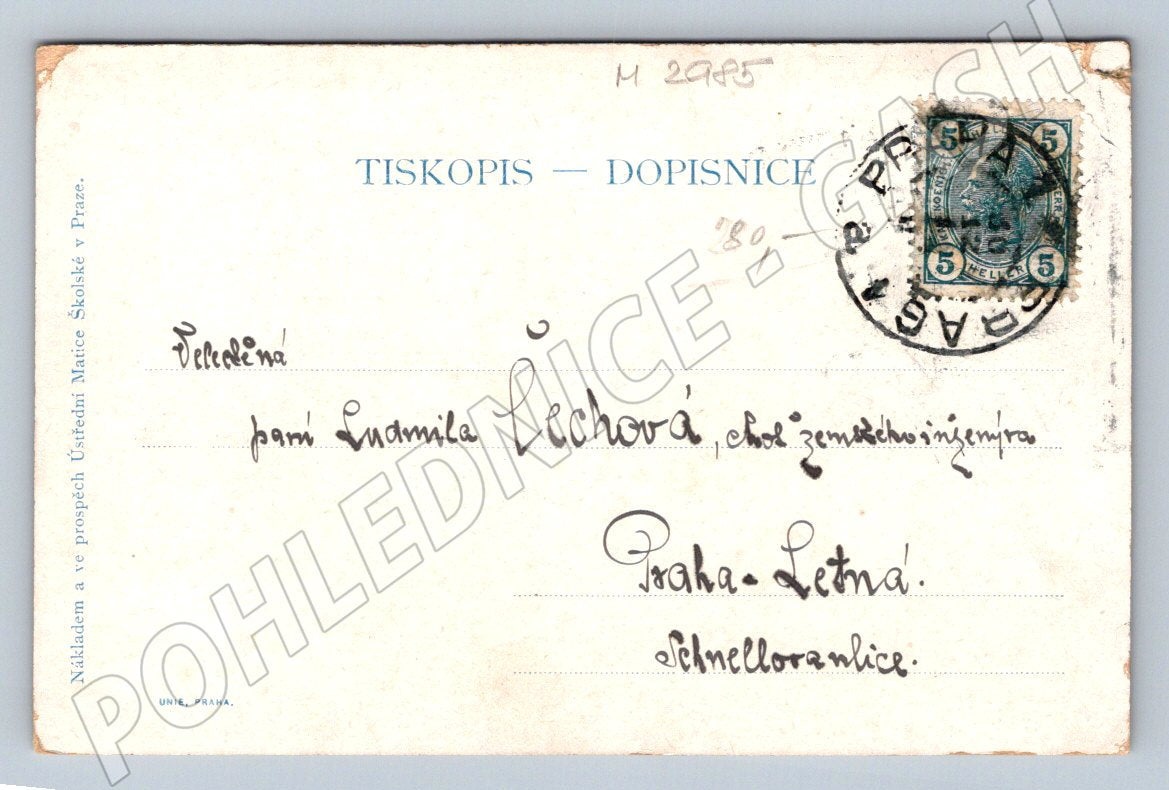 M 2985
TISKOPIS — DOPISNICE
'80,-
PRAHA 1
PRAG 1
5 5
5 HELLER 5
Velectěná
paní Ludmila Čechová, choť zemského inženýra
Praha-Letná.
Schnellova ulice.
Nákladem a ve prospěch Ústřední Matice Školské v Praze.
UNIE, PRAHA.
POHLEDNICE - GASH